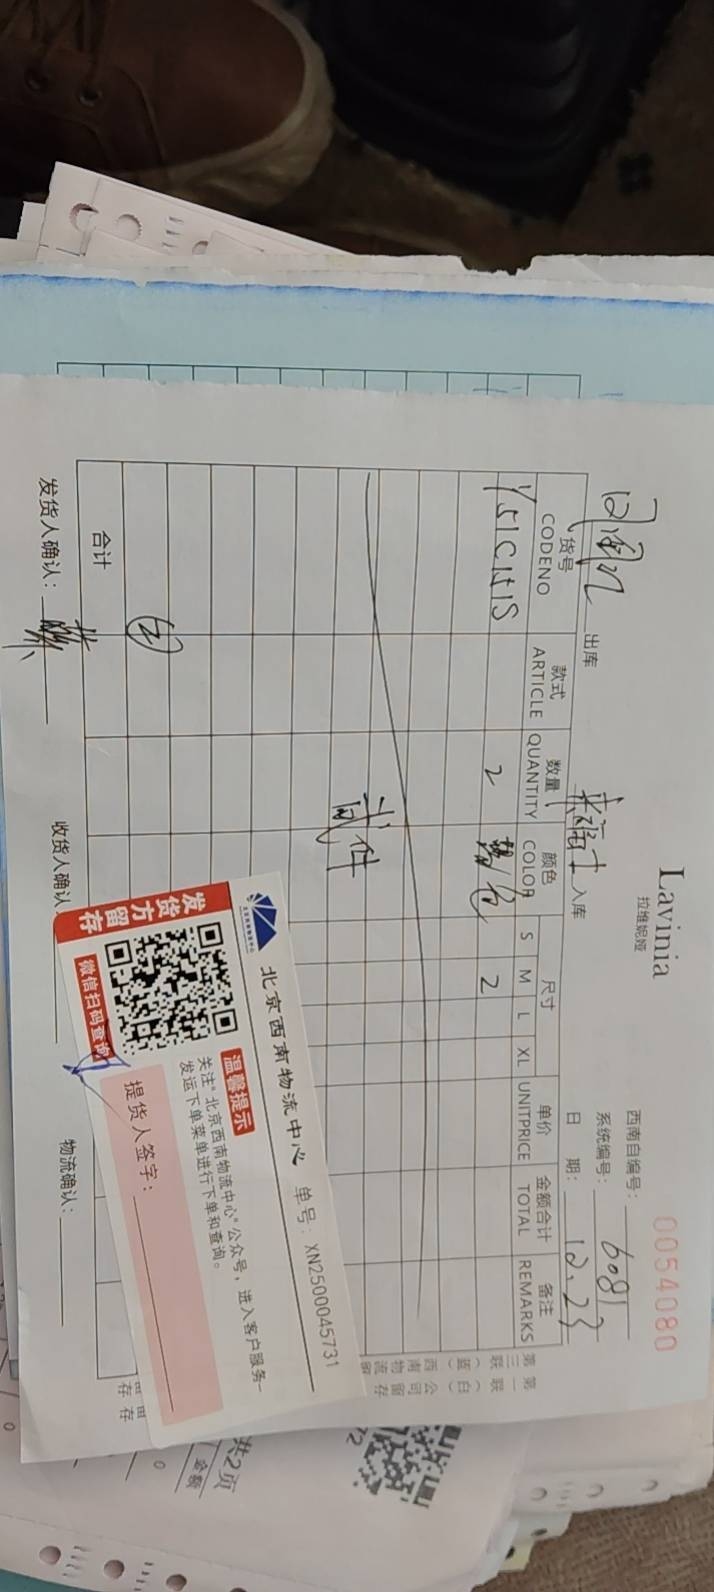 Lavinia
拉维妮娅
0054080
西南自编号：
系统编号： 6081
出库
入库
日 期： 12.23
货号 款式 数量 颜色 尺寸 单价 金额合计 备注
CODENO ARTICLE QUANTITY COLOR S M L XL UNITPRICE TOTAL REMARKS
2 2
贰件
合计
发货人确认：
收货人确认
物流确认：
北京西南物流中心 单号：XN2500045731
温馨提示
关注"北京西南物流中心"公众号，进入客户服务—
发运下单菜单进行下单和查询。
发货方留存
微信扫码查询
提货人签字：
共2页
金额